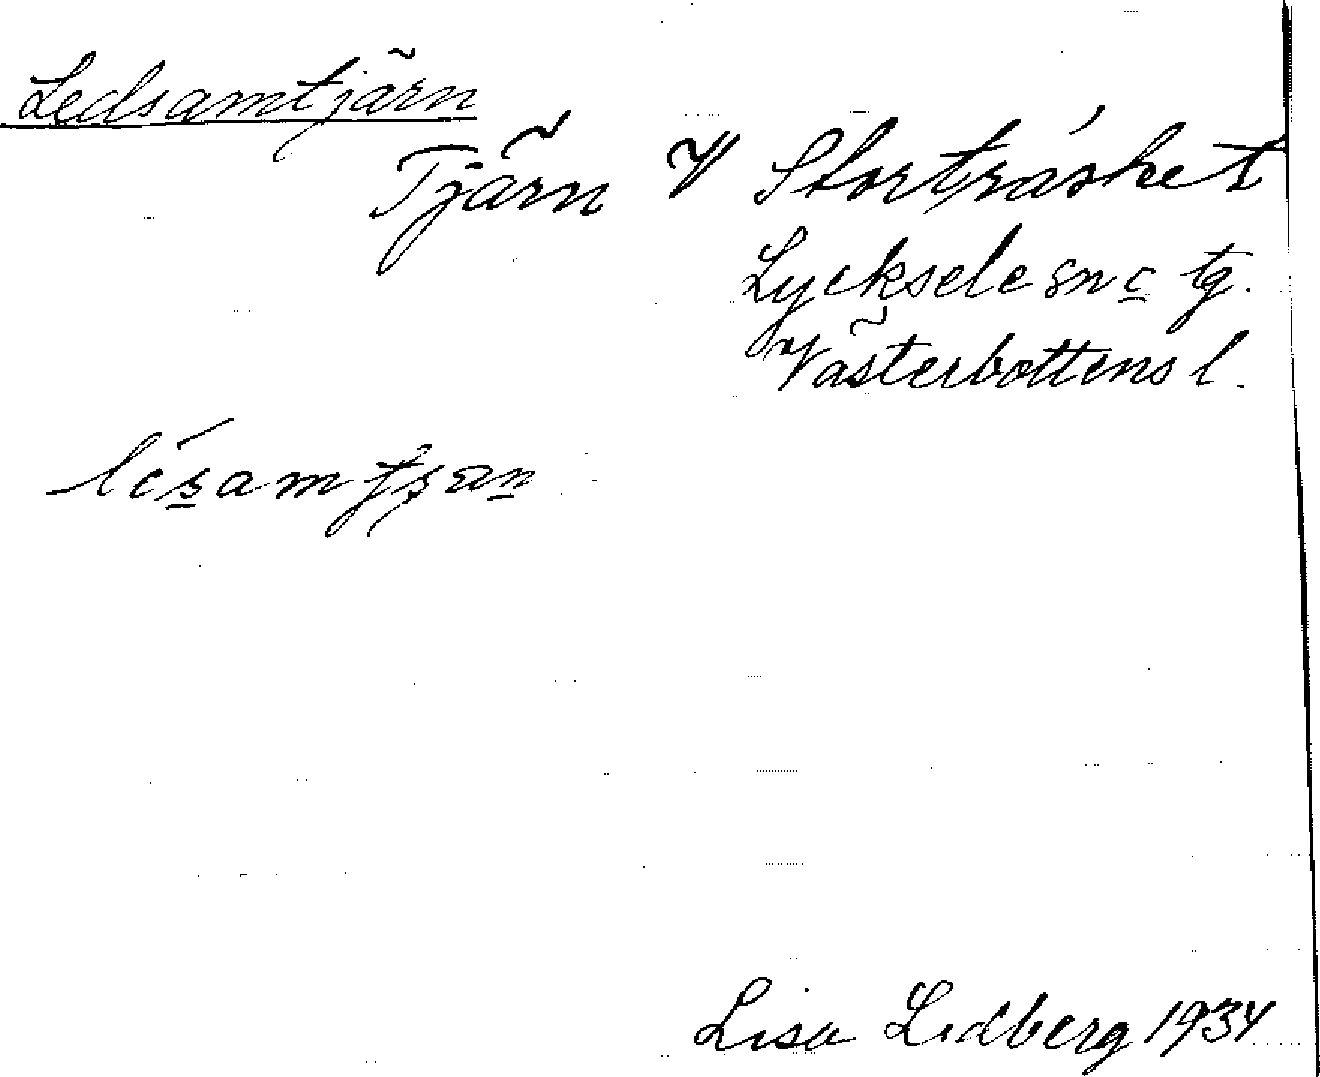 Ledsamtjärn
Tjärn V Storträsket
Lycksele sn o tg.
Västerbottens l.
Lisa Lidberg 1934